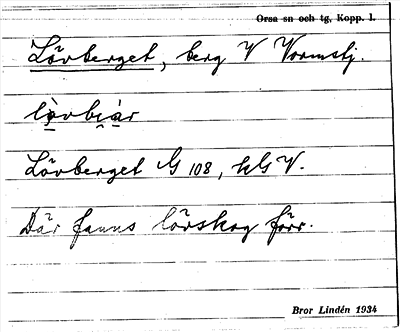 Orsa sn och tg, Kopp. l.
Lövberget, berg V Vormstj.
lövbi̯är
Lövberget G 108, kG V.
Där fanns lövskog förr.
Bror Lindén 1934